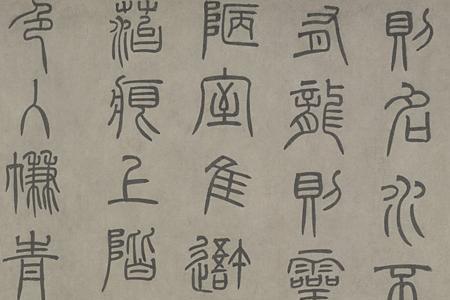 則名水不
有龍則靈
陋室隹
菭痕上階
色入㡘青